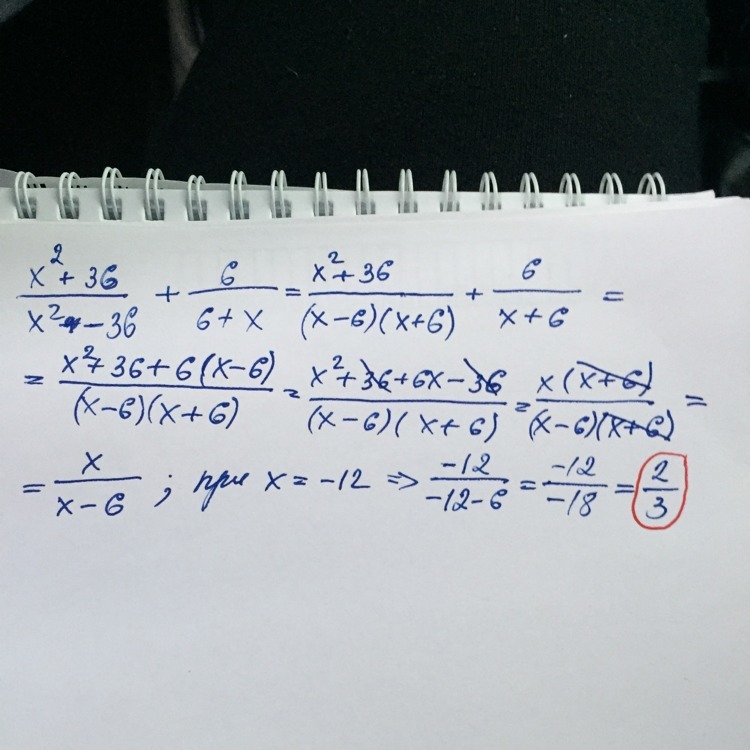 (x² + 36)/(x² - 36) + 6/(6 + x) = (x² + 36)/((x - 6)(x + 6)) + 6/(x + 6) =
= (x² + 36 + 6(x - 6))/((x - 6)(x + 6)) = (x² + 36 + 6x - 36)/((x - 6)(x + 6)) = x(x + 6)/((x - 6)(x + 6)) =
= x/(x - 6) ; при x = -12 => -12/(-12 - 6) = -12/-18 = 2/3